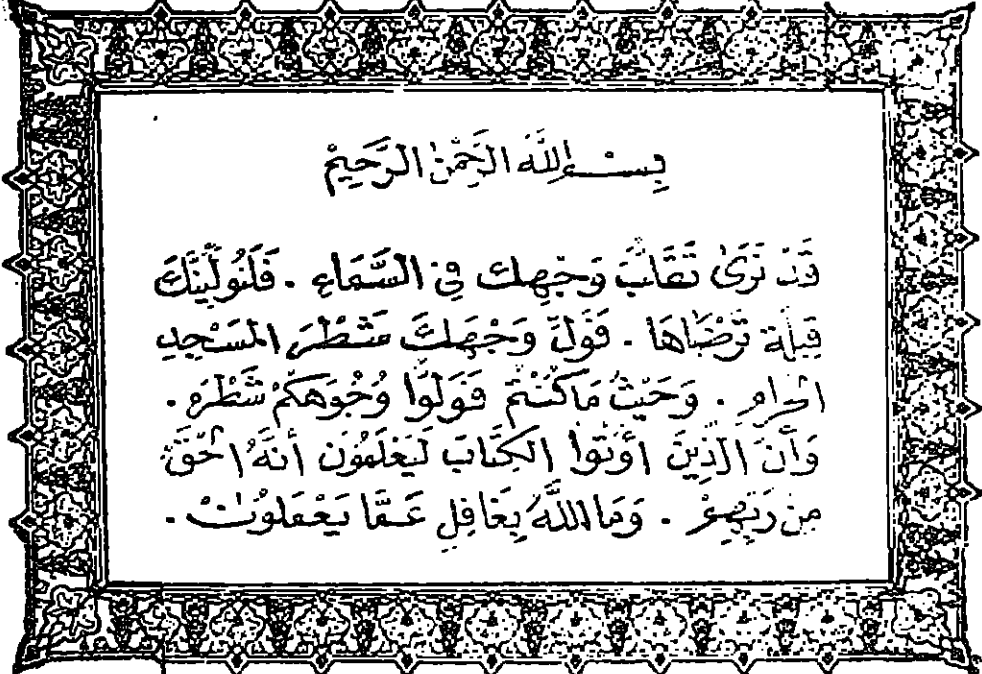 بِسْمِ اللَّهِ الرَّحْمَنِ الرَّحِيمِ
قَدْ نَرَىٰ تَقَلُّبَ وَجْهِكَ فِي السَّمَاءِ . فَلَنُوَلِّيَنَّكَ
قِبْلَةً تَرْضَاهَا . فَوَلِّ وَجْهَكَ شَطْرَ الْمَسْجِدِ
الْحَرَامِ . وَحَيْثُ مَا كُنْتُمْ فَوَلُّوا وُجُوهَكُمْ شَطْرَهُ .
وَأَنَّ الَّذِينَ أُوتُوا الْكِتَابَ لَيَعْلَمُونَ أَنَّهُ الْحَقُّ
مِنْ رَبِّهِمْ . وَمَا اللَّهُ بِغَافِلٍ عَمَّا يَعْمَلُونَ .